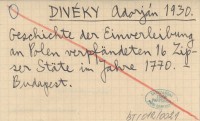 DIVÉKY Adorján 1930.
Geschichte der Einverleibung
an Polen verpfändeten 16 Zip-
ser Städte im Jahre 1770. –
Budapest.